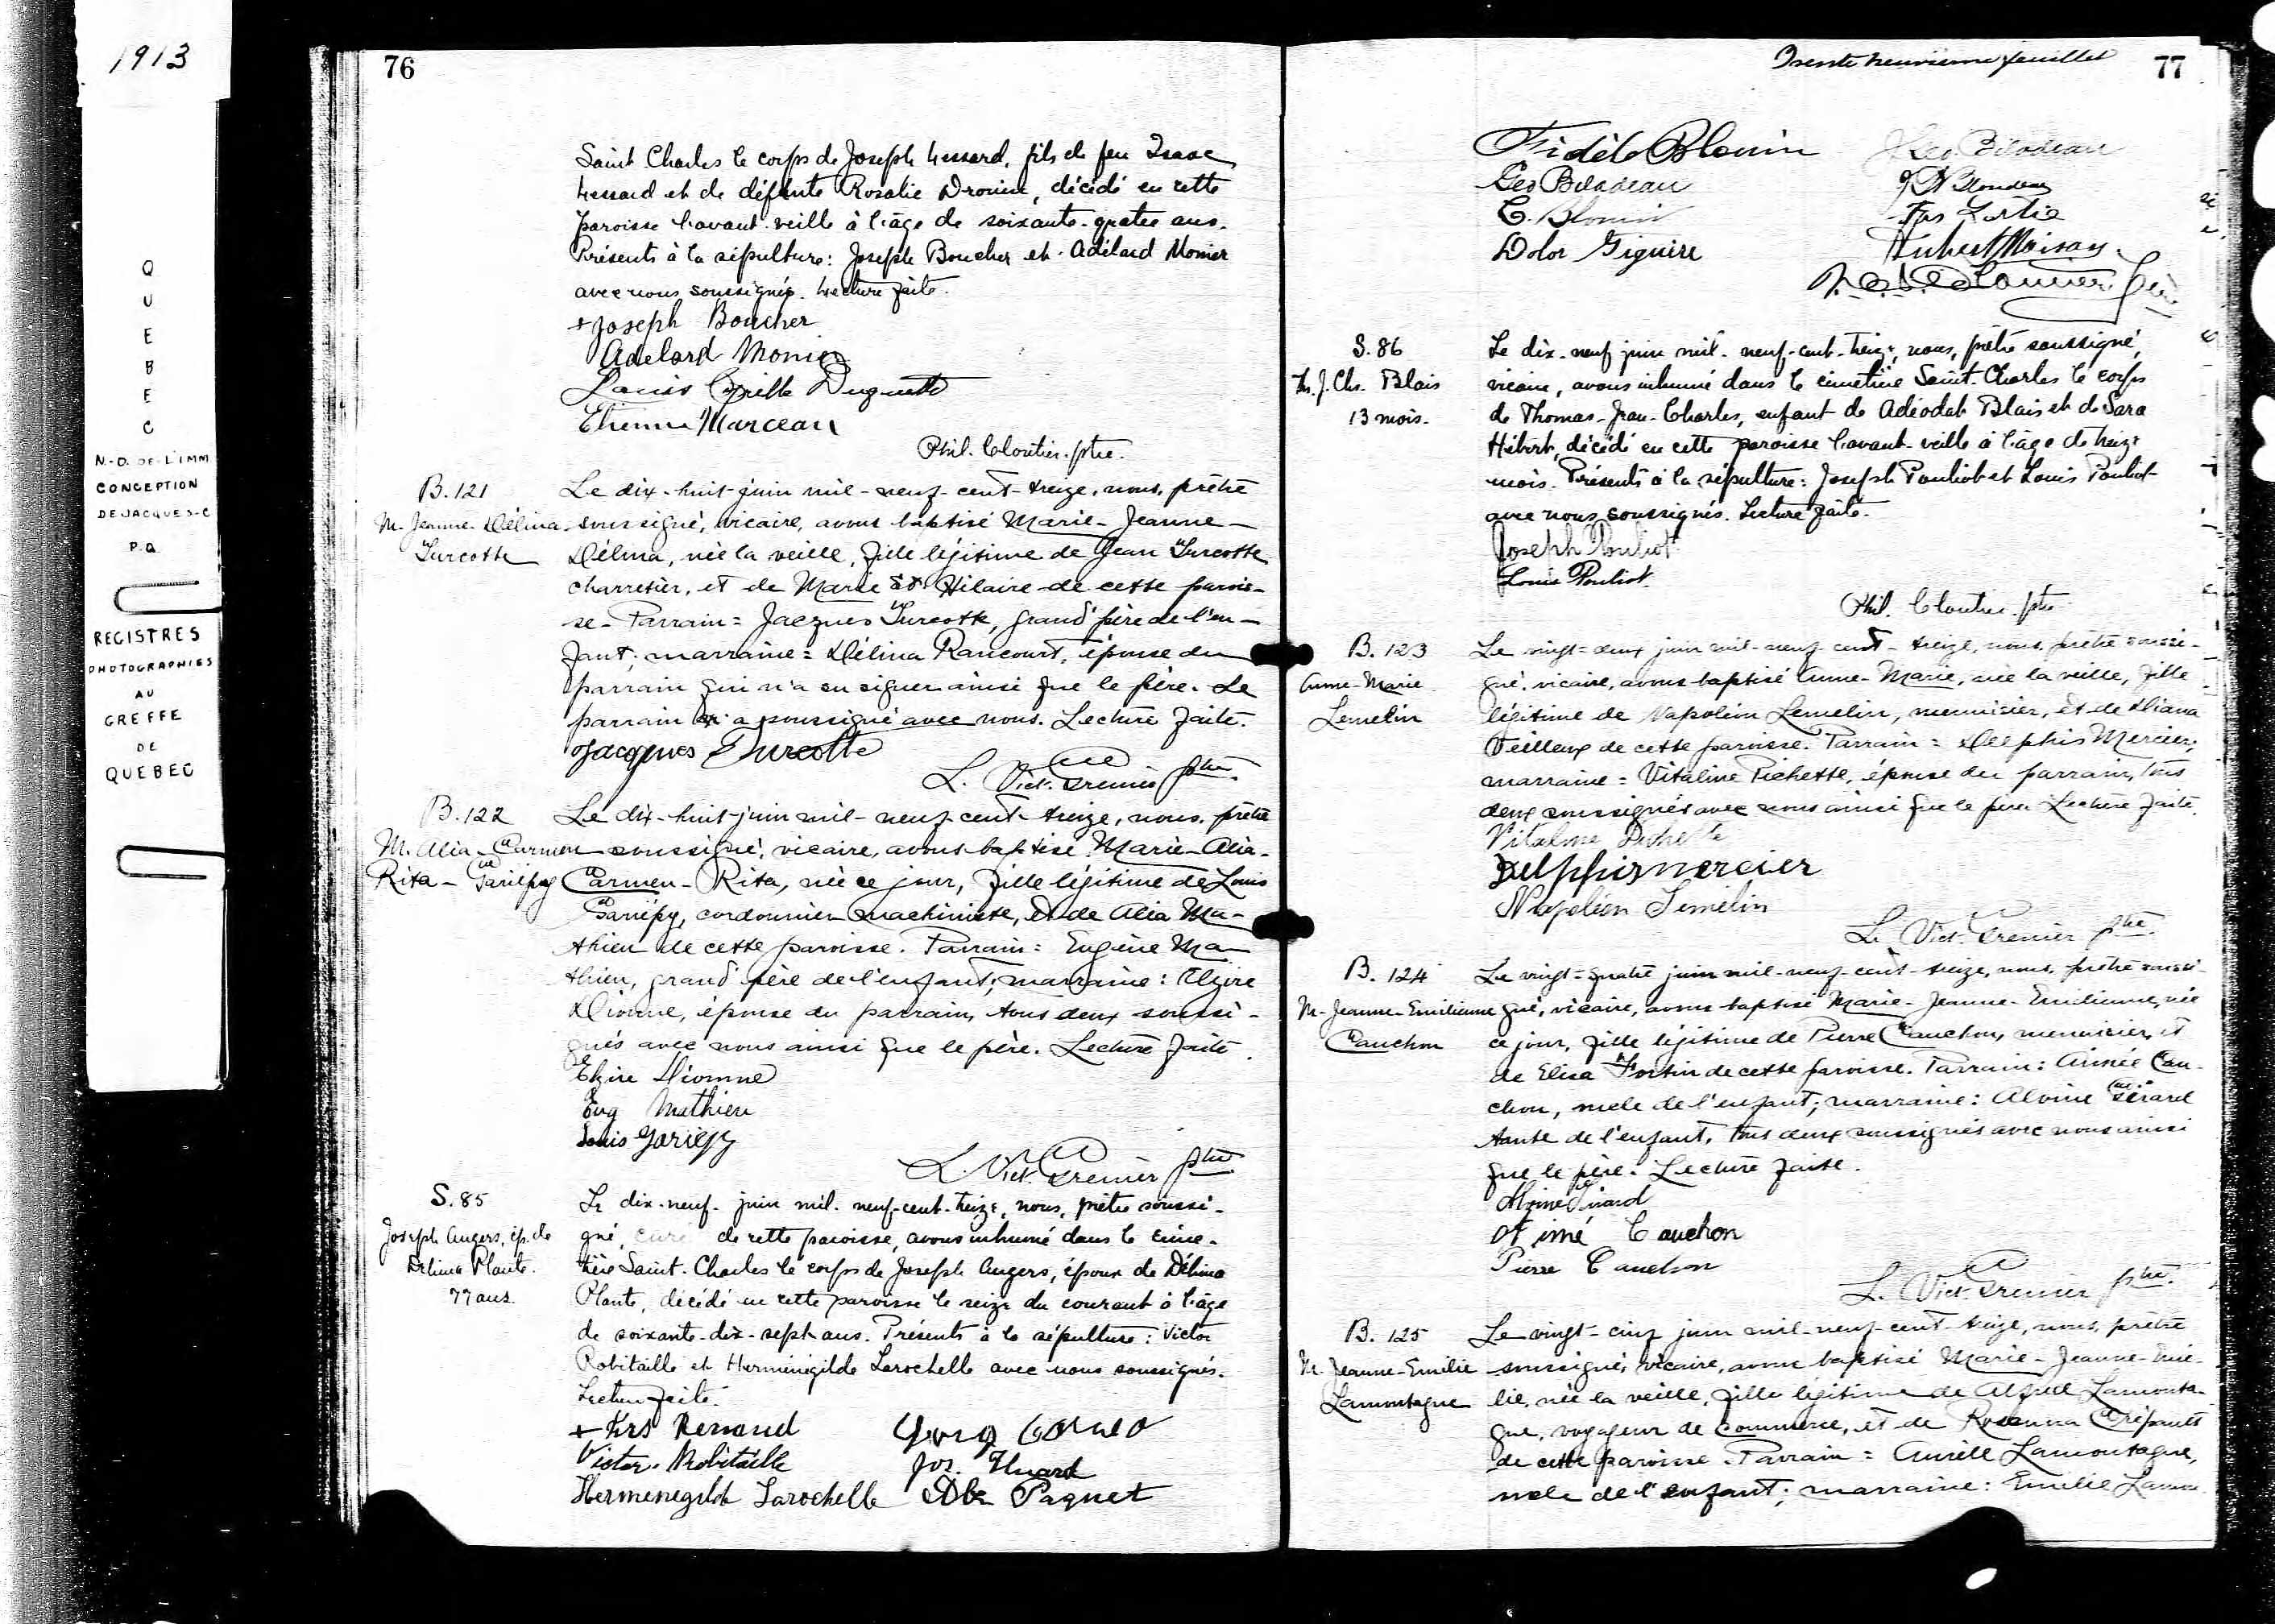 1913
Q
U
E
B
E
C
N.-D. DE-L'IMM
CONCEPTION
DE JACQUES-C
P.Q.
REGISTRES
PHOTOGRAPHIES
AU
GREFFE
DE
QUEBEC
76
Saint Charles le corps de Joseph Lessard, fils de feu Isaac
Lessard et de défunte Rosalie Drouin, décédé en cette
paroisse l'avant-veille à l'âge de soixante-quatre ans.
Présents à la sépulture: Joseph Boucher et Adélard Monier
avec nous soussignés. Lecture faite.
+ Joseph Boucher
Adelard Monier
Louis Cyrille Duquette
Etienne Marceau
Phil. Cloutier. ptre.
B. 121
M. Jeanne-Délina
Turcotte
Le dix-huit juin mil-neuf-cent-treize, nous, prêtre
soussigné, vicaire, avons baptisé Marie-Jeanne-
Délina, née la veille, fille légitime de Jean Turcotte
charretier, et de Marie St Hilaire de cette parois-
se- Parrain = Jacques Turcotte, grand'père de l'en-
fant; marraine = Délina Rancourt, épouse du
parrain qui n'a su signer ainsi que le père. Le
parrain a soussigné avec nous. Lecture faite.
Jacques Turcotte
L. Vict. Grenier ptre.
B. 122
M. Alia-Carmen
Rita-Gariépy
Le dix-huit juin mil-neuf-cent-treize, nous, prêtre
soussigné, vicaire, avons baptisé Marie-Alia-
Carmen-Rita, née ce jour, fille légitime de Louis
Gariépy, cordonnier machiniste, et de Alia Ma-
thieu de cette paroisse. Parrain: Eugène Ma-
thieu, grand'père de l'enfant; marraine: Elzire
Dionne, épouse du parrain, tous deux soussi-
gnés avec nous ainsi que le père. Lecture faite.
Elzire Dionne
Eug Mathieu
Louis Gariépy
L. Vict. Grenier ptre
S. 85
Joseph Angers, ép. de
Délina Plante.
77 ans.
Le dix-neuf-juin mil-neuf-cent-treize, nous, prêtre soussi-
gné, curé de cette paroisse, avons inhumé dans le cime-
tière Saint-Charles le corps de Joseph Angers, époux de Délina
Plante, décédé en cette paroisse le seize du courant à l'âge
de soixante-dix-sept-ans. Présents à la sépulture: Victor
Robitaille et Herménégilde Larochelle avec nous soussignés.
Lecture faite.
+ Frs Renaud
Victor. Robitaille Jos. Huard
Hermenegilde Larochelle Paquet
Trente neuvième feuillet 77
Fidèle Blouin J. Geo. Bilodeau
Geo Bilodeau Blondeau
C. Blouin Frs Lortie
Dolor Giguère Hubert Moisan
S. 86
Th. J. Chs. Blais
13 mois.
Le dix-neuf juin mil-neuf-cent-treize, nous, prêtre soussigné,
vicaire, avons inhumé dans le cimetière Saint-Charles le corps
de Thomas-Jean-Charles, enfant de Adéodat Blais et de Sara
Hébert, décédé en cette paroisse l'avant-veille à l'âge de treize
mois. Présents à la sépulture: Joseph Pouliot et Louis Pouliot
avec nous soussignés. Lecture faite.
Joseph Pouliot
Louis Pouliot
Phil. Cloutier. ptre
B. 123
Anne-Marie
Lemelin
Le vingt-deux juin mil-neuf-cent-treize, nous, prêtre soussi-
gné, vicaire, avons baptisé Anne-Marie, née la veille, fille
légitime de Napoléon Lemelin, menuisier, et de Diana
Veilleux de cette paroisse. Parrain = Delphis Mercier;
marraine = Vitaline Pichette, épouse du parrain, tous
deux soussignés avec nous ainsi que le père. Lecture faite.
Vitaline Pichette
Delphis mercier
Napoléon Lemelin
L. Vict. Grenier ptre.
B. 124
M-Jeanne-Emilienne
Cauchon
Le vingt-quatre juin mil-neuf-cent-treize, nous, prêtre soussi-
gné, vicaire, avons baptisé Marie-Jeanne-Emilienne, née
ce jour, fille légitime de Pierre Cauchon, menuisier, et
de Elisa Fortin de cette paroisse. Parrain: Aimé Cau-
chon, oncle de l'enfant; marraine: Alvine Gérard
tante de l'enfant, tous deux soussignés avec nous ainsi
que le père. Lecture faite.
Aimé Cauchon
Pierre Cauchon
L. Vict. Grenier ptre.
B. 125
M. Jeanne-Emilie
Lamontagne
Le vingt-cinq juin mil-neuf-cent-treize, nous, prêtre
soussigné, vicaire, avons baptisé Marie-Jeanne-Emi-
lie, née la veille, fille légitime de Alfred Lamonta-
gne, voyageur de commerce, et de Rosanna Crépault
de cette paroisse. Parrain = Aurèle Lamontagne,
oncle de l'enfant; marraine: Emilie Lamon